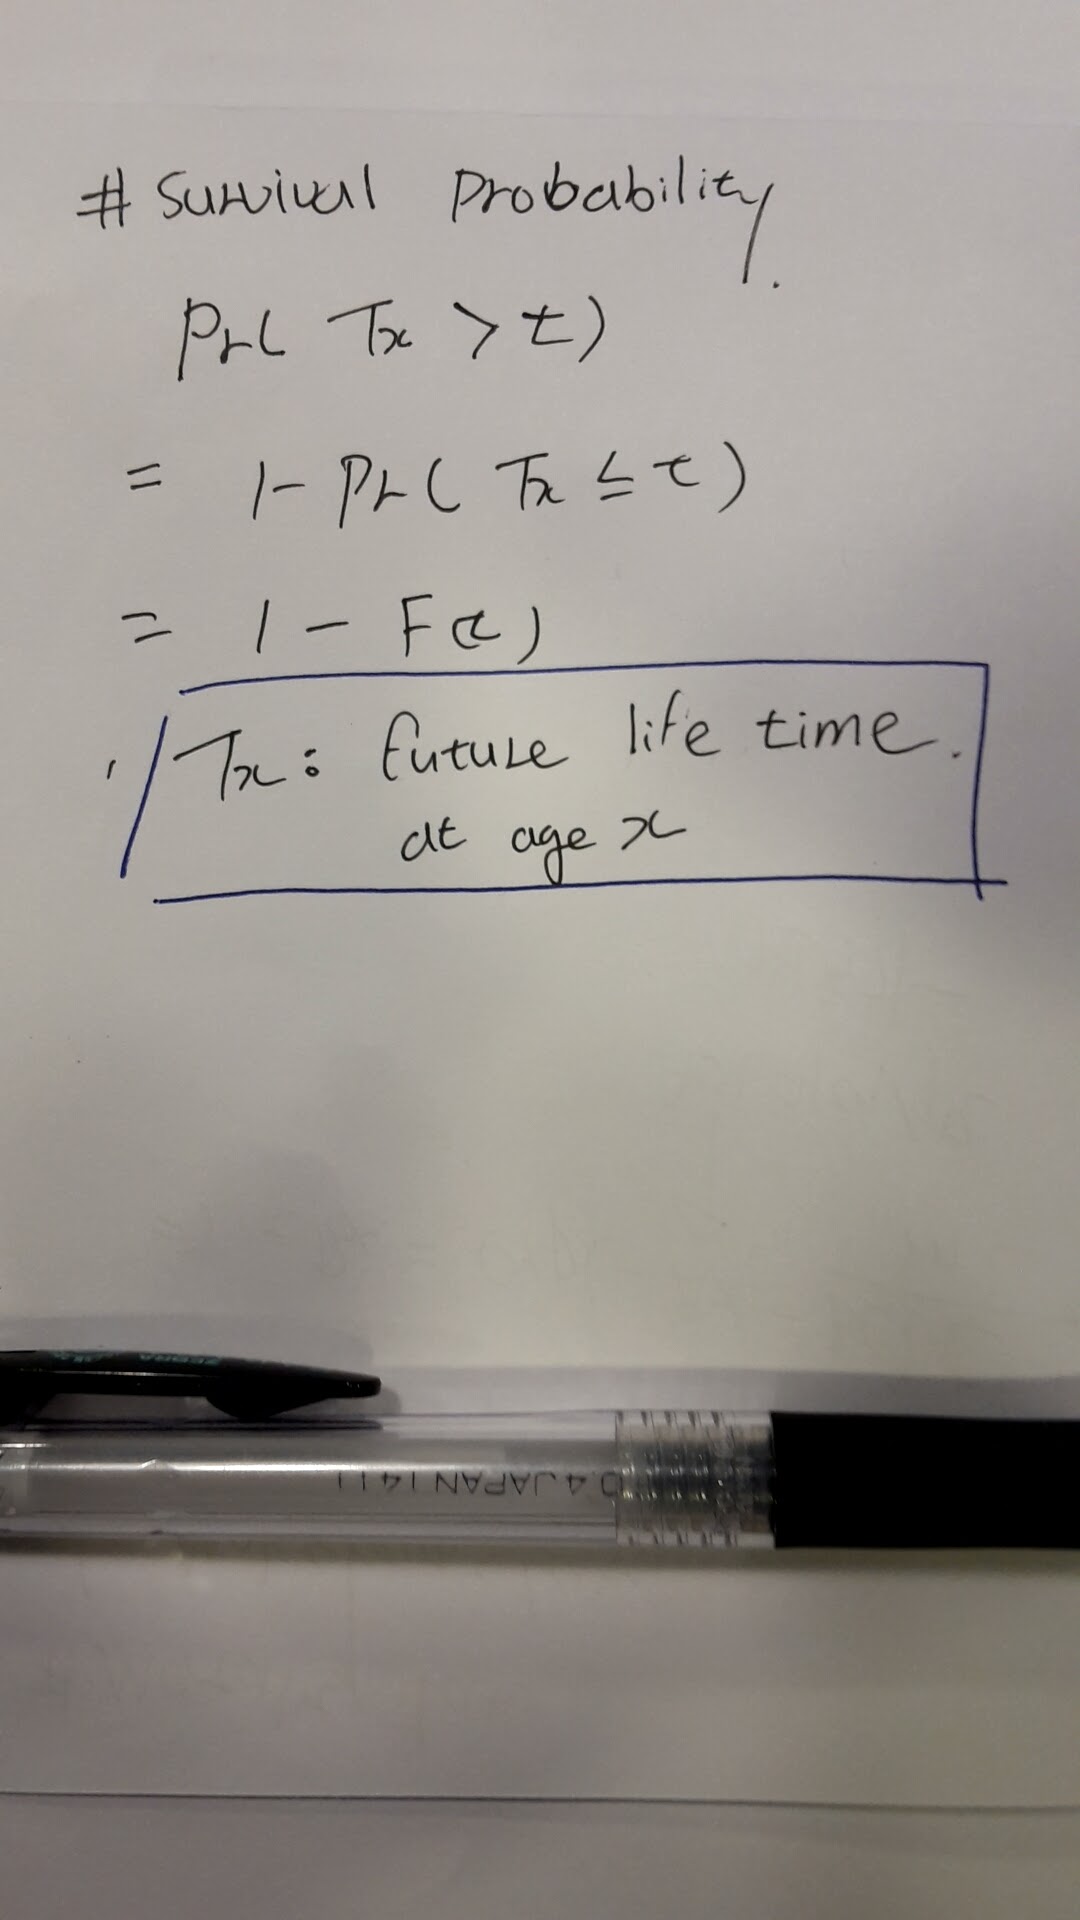 # Survival Probability.
Pr( Tx > t)
= 1- Pr( Tx ≤ t)
= 1 - F(t)
Tx: future life time.
at age x
ZEBRA
0.4 JAPAN 1411